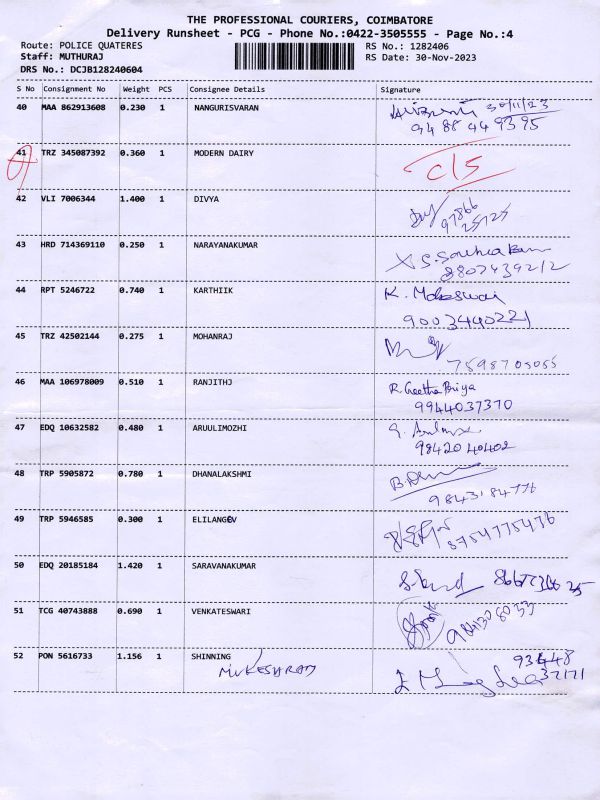 THE PROFESSIONAL COURIERS, COIMBATORE
Delivery Runsheet - PCG - Phone No.:0422-3505555 - Page No.:4
Route: POLICE QUATERES RS No.: 1282406
Staff: MUTHURAJ RS Date: 30-Nov-2023
DRS No.: DCJB128240604
S No Consignment No Weight PCS Consignee Details Signature
40 MAA 862913608 0.230 1 NANGURISVARAN 30/11/23
94 88 44 9395
41 TRZ 345087392 0.360 1 MODERN DAIRY c/s
42 VLI 7006344 1.400 1 DIVYA 97866
25725
43 HRD 714369110 0.250 1 NARAYANAKUMAR
8807439212
44 RPT 5246722 0.740 1 KARTHIIK K.
9003440221
45 TRZ 42502144 0.275 1 MOHANRAJ
7598705055
46 MAA 106978009 0.510 1 RANJITHJ R. Geetha Priya
9944037370
47 EDQ 10632582 0.480 1 ARUULIMOZHI
98420 40402
48 TRP 5905872 0.780 1 DHANALAKSHMI
9843184776
49 TRP 5946585 0.300 1 8754775476
50 EDQ 20185184 1.420 1 SARAVANAKUMAR
51 TCG 40743888 0.690 1 VENKATESWARI
52 PON 5616733 1.156 1 SHINNING 93448
MUKESHRAJ 37171